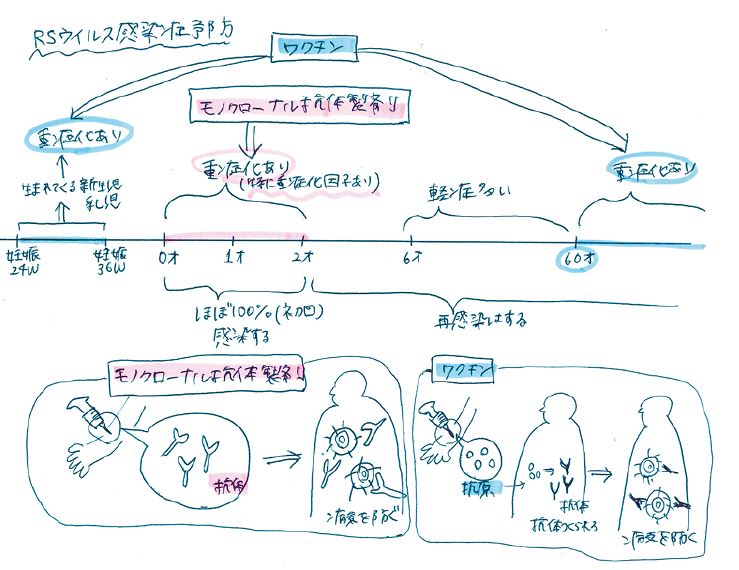 RSウイルス感染症予防
ワクチン
モノクローナル抗体製剤
重症化あり
重症化あり
(特に重症化因子あり)
重症化あり
生まれてくる新生児
乳児
軽症多い
妊娠
24W
妊娠
36W
0才
1才
2才
6才
60才
ほぼ100%(初回)
感染する
再感染はする
モノクローナル抗体製剤
抗体
病気を防ぐ
ワクチン
抗原
抗体
抗体つくられる
病気を防ぐ